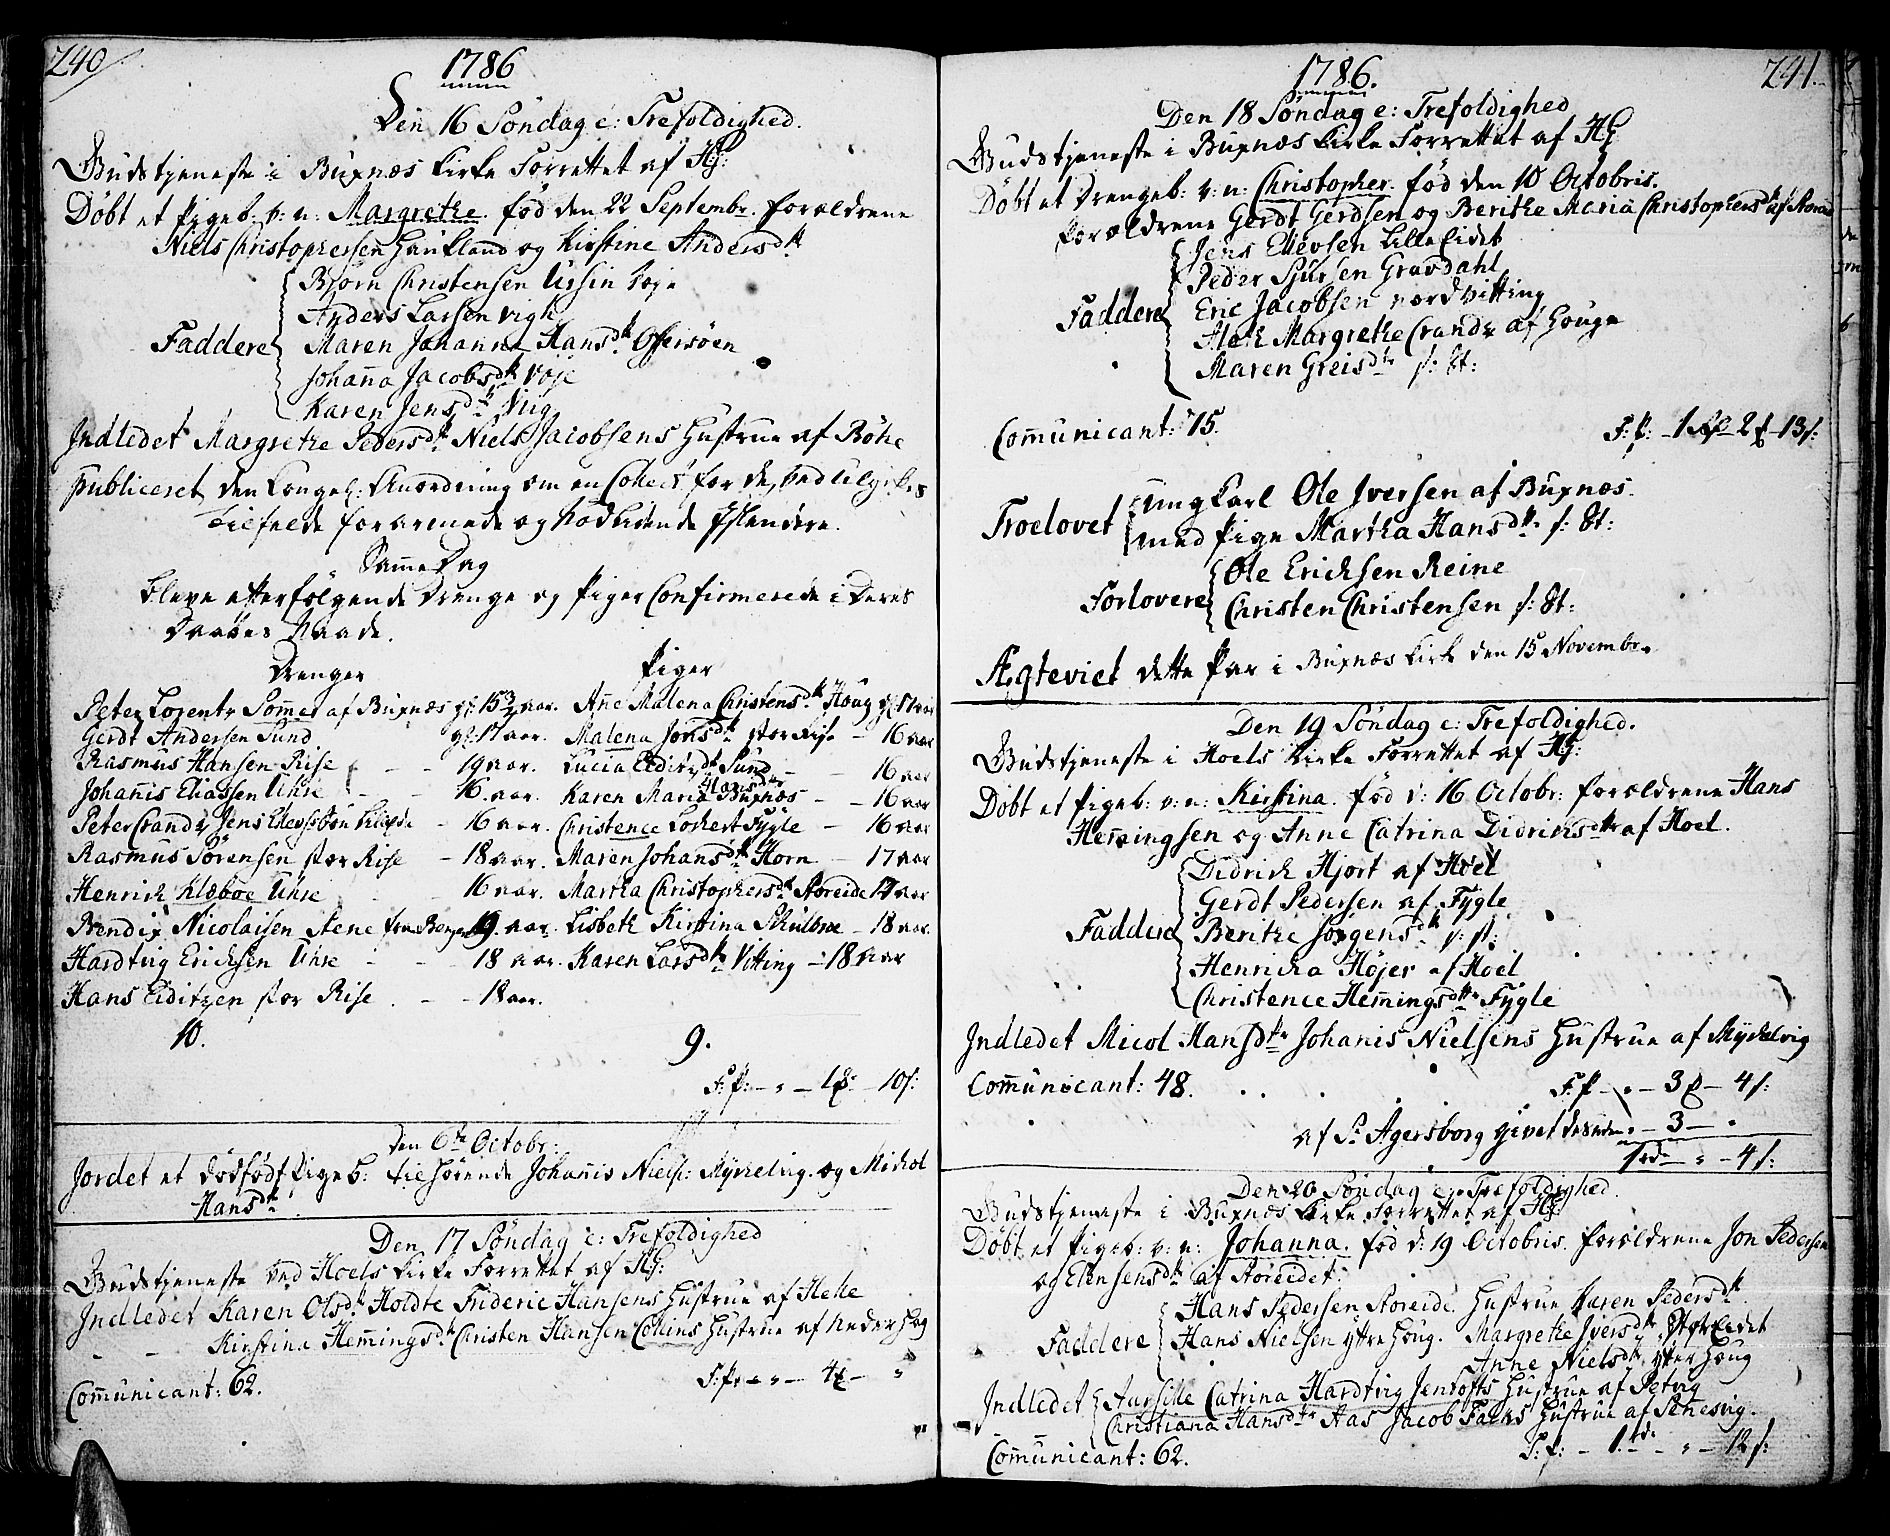 240
1786
Den 16 Söndag e: Trefoldighed.
Gudstjeneste i Buxnæs Kirke Forrettet af HG:
Döbt et Pigeb: v: n: Margrethe. föd den 22 Septembr. Forældrene
Niels Christophersen Haukland og Kirstine Andersdtr
Björn Christensen Ursin
Anders Larsen vigh
Faddere Maren Johanna Hansdtr Offersöen
Johanna Jacobsdtr Voje
Karen Jensdtr Viig
Indledet Margrethe Pedersdtr Niels Jacobsens Hustrue af Böhe
Publiceret den Kongel: Anordning om en Collect for de, ved Ulyckes
Tilfelde forarmede og Nödlidende Islændere.
Samme Dag
bleve efterfölgende Drenge og Piger Confirmerede i Deres
Daabes Naade.
Drenger Piger
Peter Lorentz Sommer af Buxnæs gl: 15 3/4 aar. Ane Malena Christensdtr Houg gl: 17 aar
Gerdt Andersen Sund gl: 17 aar. Malena Jonsdtr stor Rise - 16 aar
Rasmus Hansen Rise - - 19 aar. Lucia Sund - - 16 aar
Johannis Eliassen Uhre - 16. aar. Karen Maria Hansdtr Buxnæs - - 16 aar
Peter Crandtz Jens - 16 aar. Christence Lockert Fygle - 16 aar
Rasmus Sörensen stor Rise - 18 aar. Maren Johansdtr Horn - 17 aar
Henrich Klæboe Uhre - 16 aar. Martha Christophersdtr Storeide 17 aar
Bendix Nicolaisen Stene fra Bergen 19. aar. Lisbeth Kirstina Skulbroe - 18 aar.
Hardtvig Ericksen Uhre - - 18 aar. Karen Larsdtr Vitting - 18 aar
Hans Eiditzen stor Rise. - - 18 aar.
10. 9.
F: P: - " - 1 - 10 s:
Den 6te Octobr:
Jordet et dödfödt Pigeb: tilhörende Johannis Niels: Myckelvig. og Mickol
Hansdtr
Den 17 Söndag e: Trefoldighed
Gudstjeneste ved Hoels Kirke Forrettet af HG:
Indledet Karen Olsdtr Holdte Frideric Hansens Hustrue af Helle
- - Kirstina Hemingsdtr Christen Hansen Collins Hustrue af Nederhag
F: P: - " - 4 - "
Communicant: 62.
241.
1786.
Den 18 Söndag e: Trefoldighed
Gudstjeneste i Buxnæs Kirke Forrettet af HG
Döbt et Drengeb: v: n: Christopher. föd den 10 Octobris.
Forældrene Gerdt Gerdsen og Berithe Maria Christophersdtr af
Jens Ellevsen Lille Eidet
Peder Sjursen Gravdahl
Faddere Eric Jacobsen nordVitting
Aleth Margrethe Crandtz af Houge
Maren Greisdtr s: St:
Communicant: 75. F: P: - 1 rd - 2 - 13 s:
Troelovet ungkarl Ole Iversen af Buxnæs.
med Pige Martha Hansdtr s: St:
Forlovere Ole Ericksen Reine
Christen Christensen s: St:
Ægteviet dette Par i Buxnæs Kirke den 15 Novembr.
Den 19 Söndag e: Trefoldighed.
Gudstjeneste i Hoels Kirke Forrettet af HG:
Döbt et Pigeb: v: n: Kirstina. föd d: 16 Octobr: Forældrene Hans
Hemingsen og Anne Catrina Didrichsdtr af Hoel.
Didrich Hjort af Hoel
Gerdt Pedersen af Fygle
Faddere Berithe Jörgensdtr s: St:
Henricha Höjer af Hoel
Christence Hemingsdtr Fygle
Indledet Micol Hansdtr Johanis Nielsens Hustrue af Myckelvig
Communicant: 48. F: P - " - 3 - 4 s:
af Sr Agersborg givet desuden " - 3 - "
1 rd - " - 4 s:
Den 20 Söndag e: Trefoldighed.
Gudstjeneste i Buxnæs Kirke Forrettet af HG:
Döbt et Pigeb: v: n: Johanna. föd d: 19 Octobris. Forældrene Jon Pedersen
og af Storeidet:
Hans Pedersen Storeide. Hustrue Karen Pedersdtr
Faddere Hans Nielsen yttre Houg. Margrethe Iversdtr StorEidet
Anne Nielsdtr ytter Houg
Indledet Aarsille Catrina Hardtvig Jentofts Hustrue af Petvig
Christiana Hansdtr Aas Jacob Falchs Hustrue af Senesvig.
Communicant: 62. F: P: - 1 rd - " - 12 s: